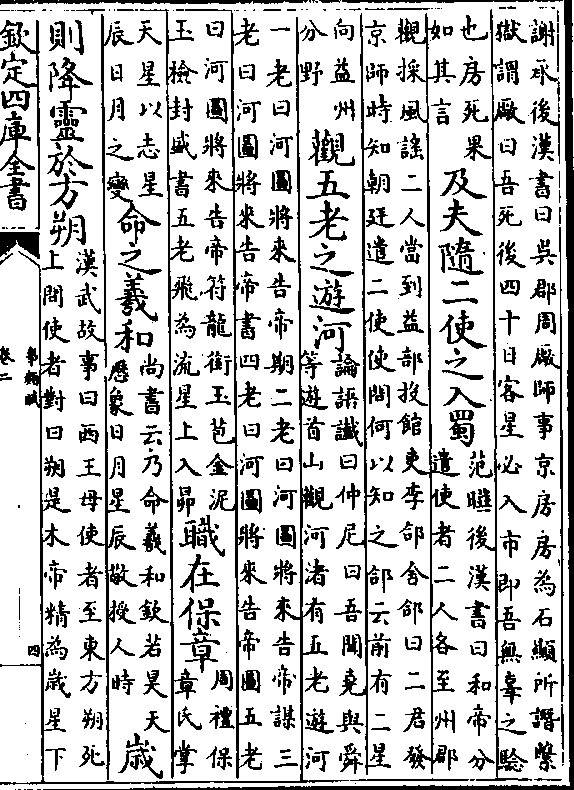 謝承後漢書曰吳郡周廠師事京房房為石顯所譖繫
獄謂廠曰吾死後四十日客星必入市即吾無辜之驗
也房死果
如其言
及夫隨二使之入蜀
范曄後漢書曰和帝分
遣使者二人各至州郡
觀採風謠二人當到益部投館吏李郃舍郃曰二君發
京師時知朝廷遣二使使問何以知之郃云前有二星
向益州
分野
觀五老之遊河
論語讖曰仲尼曰吾聞堯與舜
等遊首山觀河渚有五老遊河
一老曰河圖將來告帝期二老曰河圖將來告帝謀三
老曰河圖將來告帝書四老曰河圖將來告帝圖五老
曰河圖將來告帝符龍銜玉苞金泥
玉檢封盛書五老飛為流星上入昴
職在保章
周禮保
章氏掌
天星以志星
辰日月之變
命之羲和
尚書云乃命羲和欽若昊天
厯象日月星辰敬授人時
歲
則降靈於方朔
漢武故事曰西王母使者至東方朔死
上問使者對曰朔是木帝精為歲星下
欽定四庫全書
事類賦
卷二
四